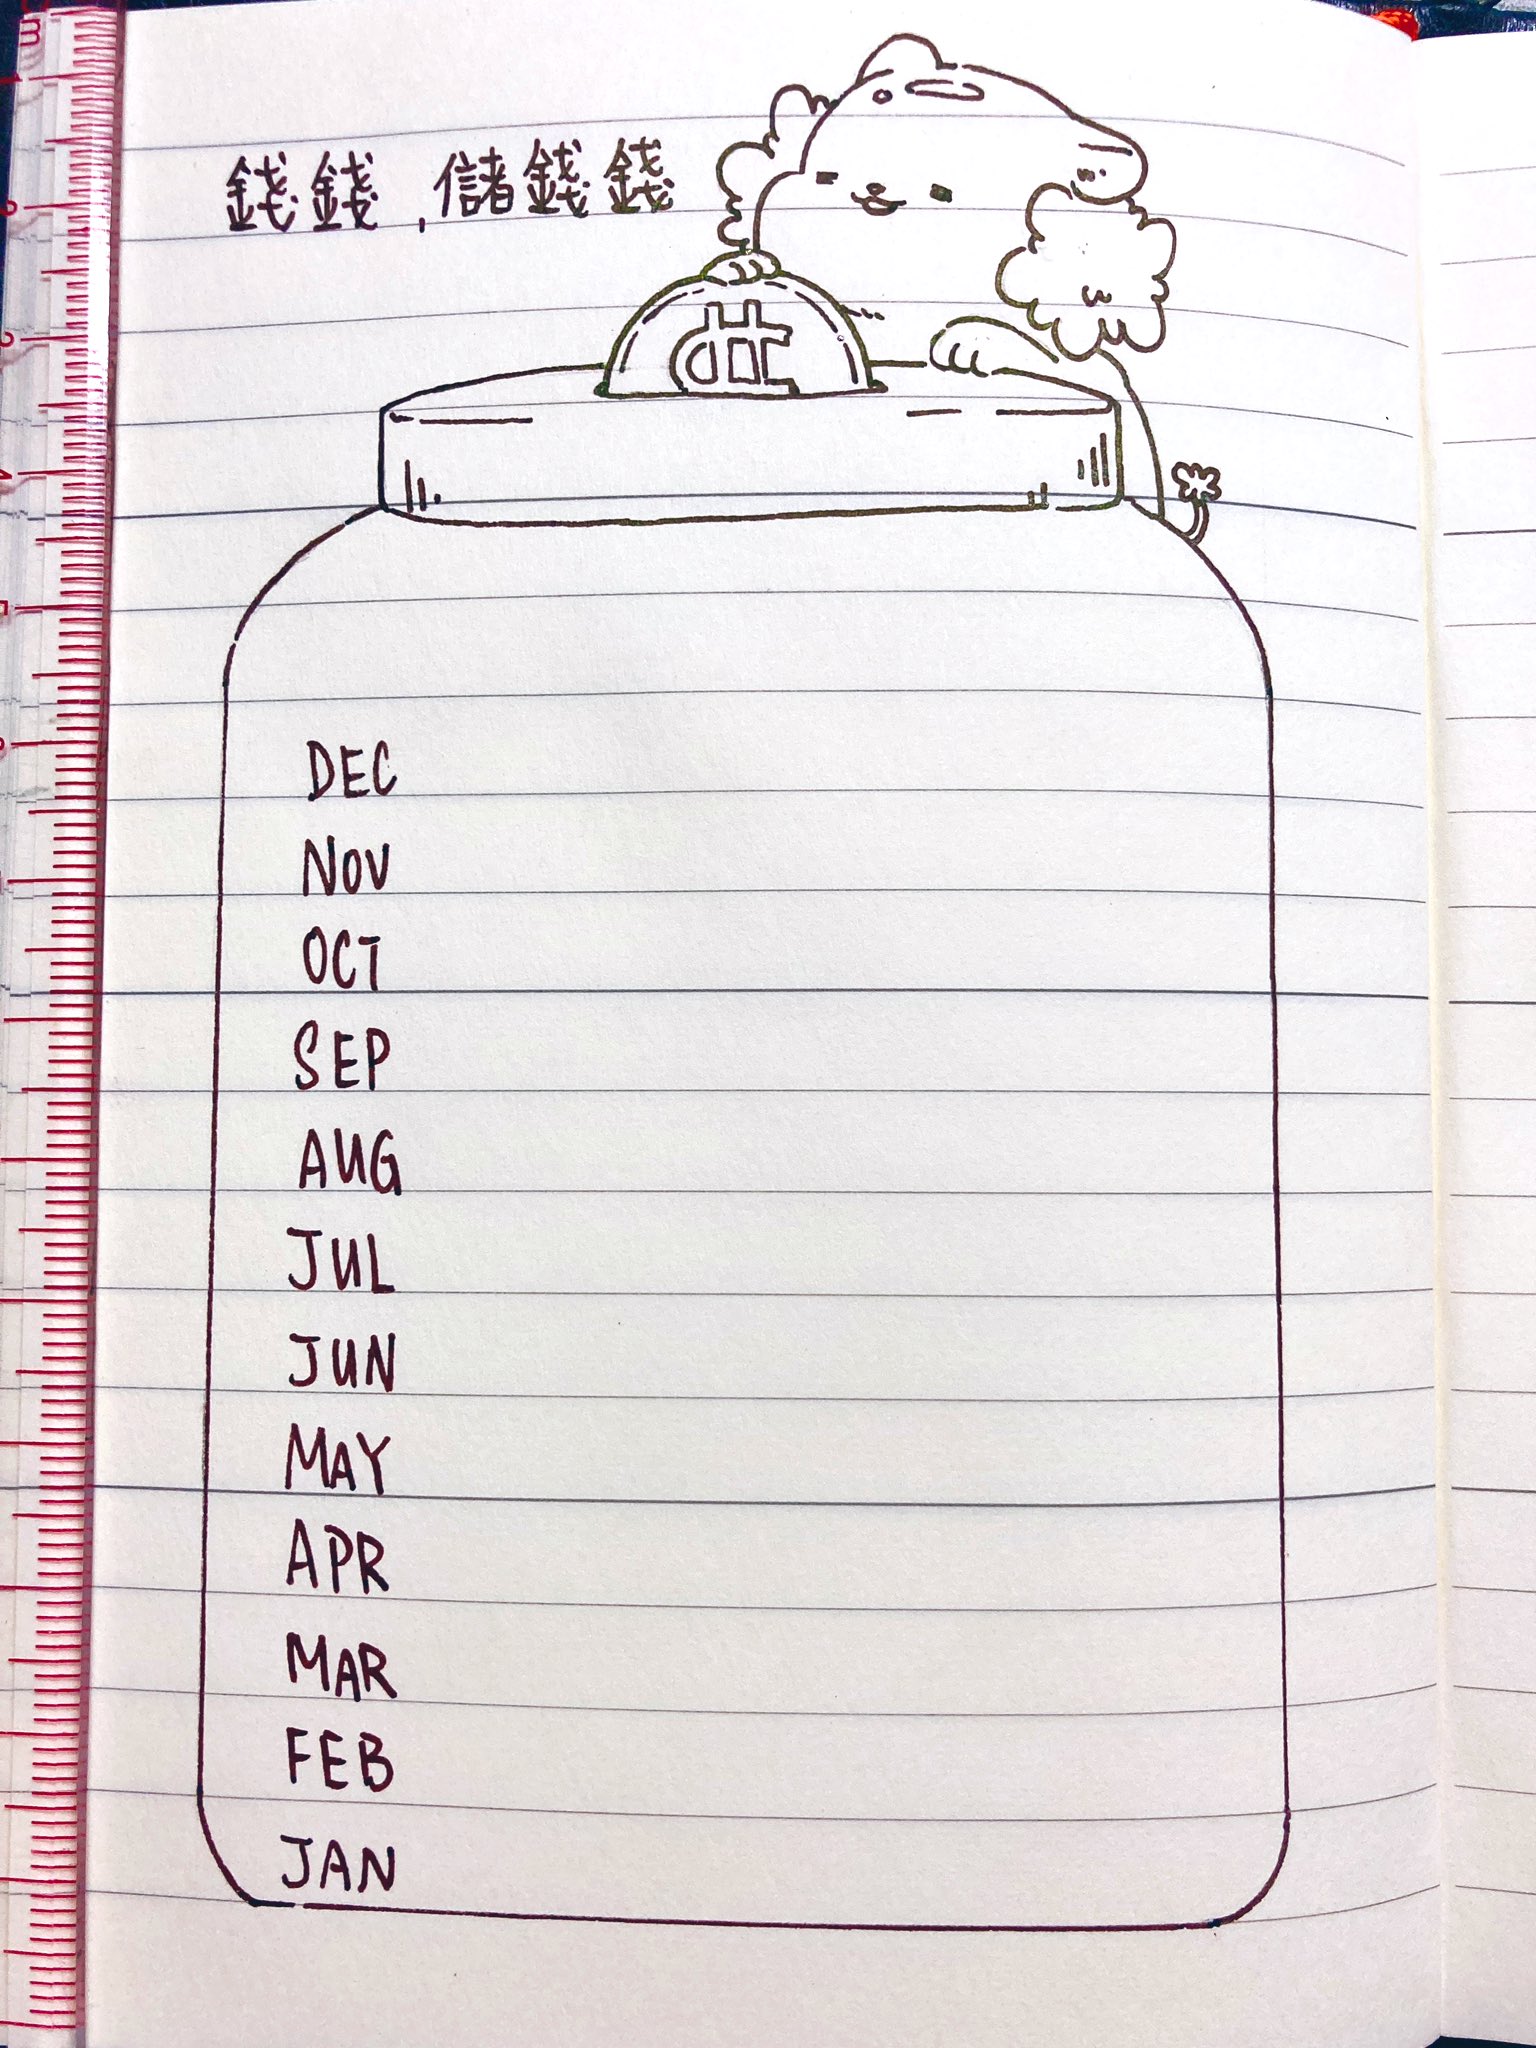 錢錢,儲錢錢
DEC
NOV
OCT
SEP
AUG
JUL
JUN
MAY
APR
MAR
FEB
JAN